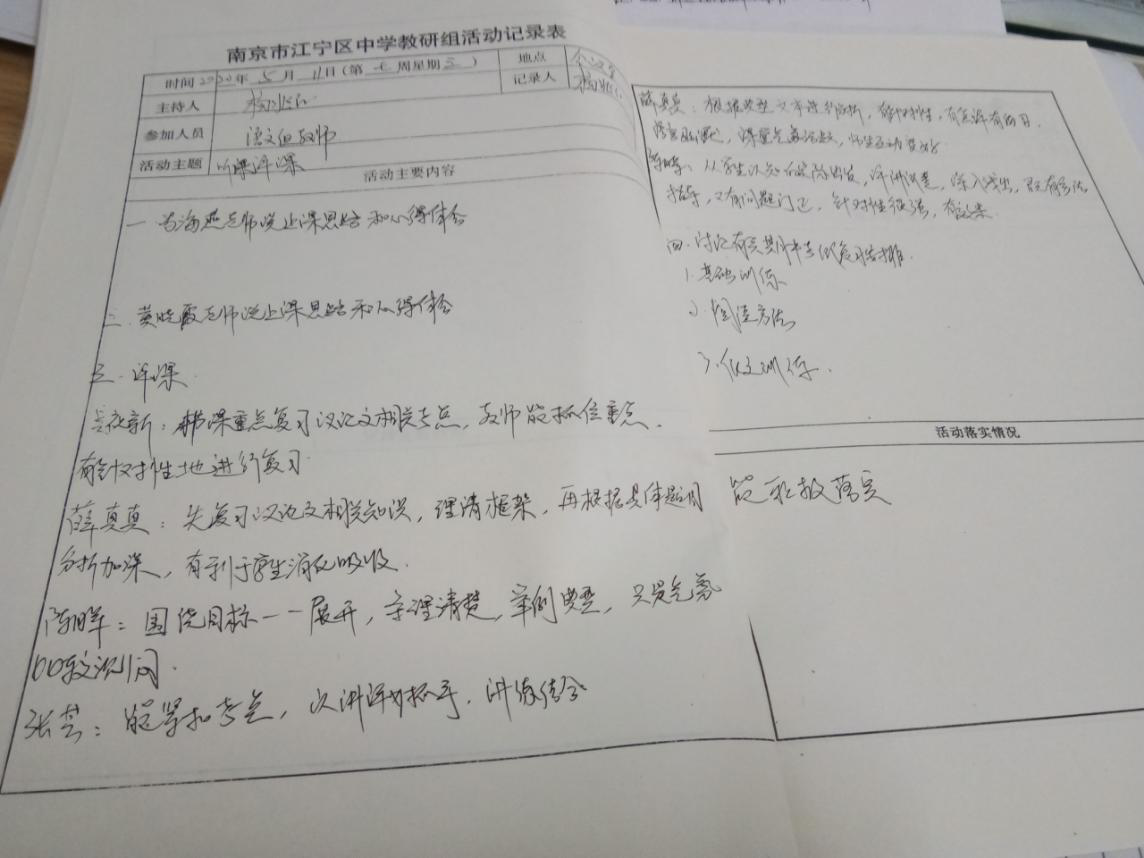 南京市江宁区中学教研组活动记录表
时间2020年5月 日(第七周星期三) 地点 会议室
主持人 记录人
参加人员 语文组教师
活动主题 听课评课
活动主要内容
一. 海燕老师说上课思路和心得体会
二. 黄晓霞老师说上课思路和心得体会
三. 评课.
新:本节课重点复习议论文相关考点,教师能抓住重点.
有针对性地进行复习.
薛真真:先复习议论文相关知识,理清框架,再根据具体题目
分析加深,有利于学生消化吸收.
陈晖:围绕目标一一展开,条理清楚,举例典型,只是气氛
比较沉闷.
张芸:能紧扣考点,以讲评为抓手,讲练结合
薛真真:根据典型文本进行分析,有针对性,有 有面目.
课堂气氛活跃,师生互动
陈晖:从学生认知 实际出发,评讲试卷,深入浅出,既有方法
指导,又有问题订正,针对性很强,有效果.
四.讨论有关期中考试复习安排.
1.基础训练
2.阅读方法
3.作文训练.
活动落实情况
能积极落实